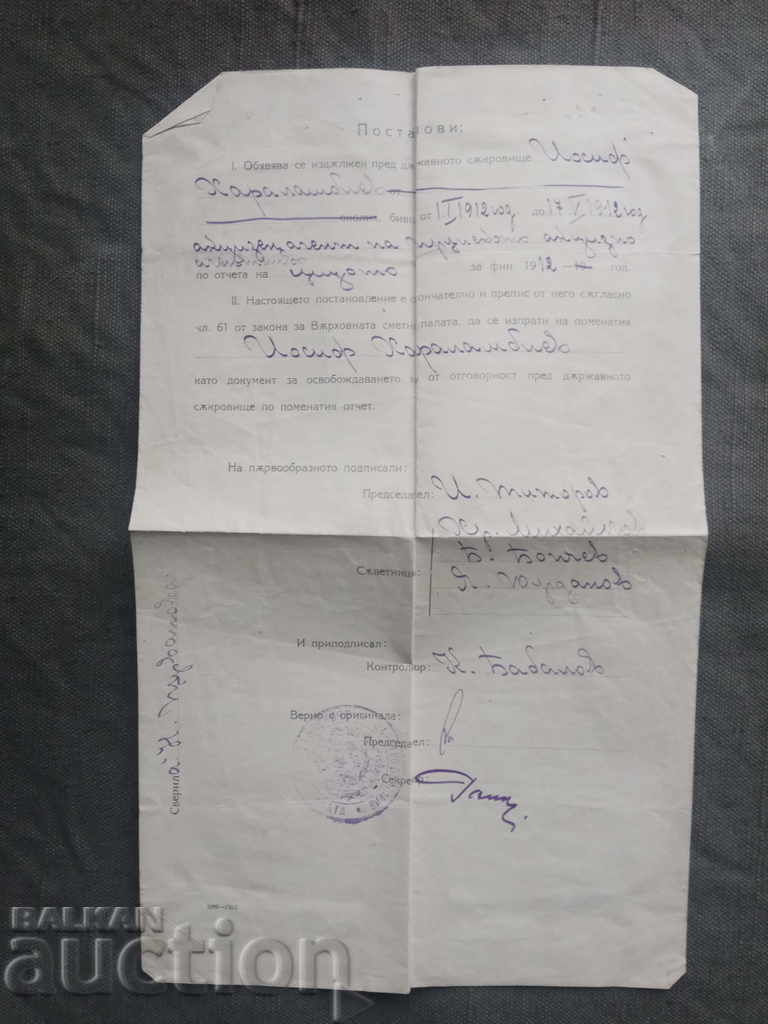 Постанови:
I. Обявява се издѫлжен пред дѫржавното сѫкровище Иосиф
Хараламбиев
околия, бивш от 1/I 1912 год до 17/V 1912 год
акцизен агент на акцизно
по отчета на за фин 1912 год.
II. Настоящето постановление е окончателно и препис от него сѫгласно
чл. 61 от закона за Вѫрховната сметна палата, да се изпрати на поменатия
Иосиф Хараламбиев
като документ за освобождаването му от отговорност пред дѫржавното
сѫкровище по поменатия отчет.
На пѫрвообразното подписали:
Председател: И. Титоров
Хр. Михайлов
Сѫветници: Б. Бончев
Я. Юрданов
И приподписал:
Контрольор: К. Бабамов
Верно с оригинала:
Председател:
Секретар:
Сверила:
BALKAN
auction